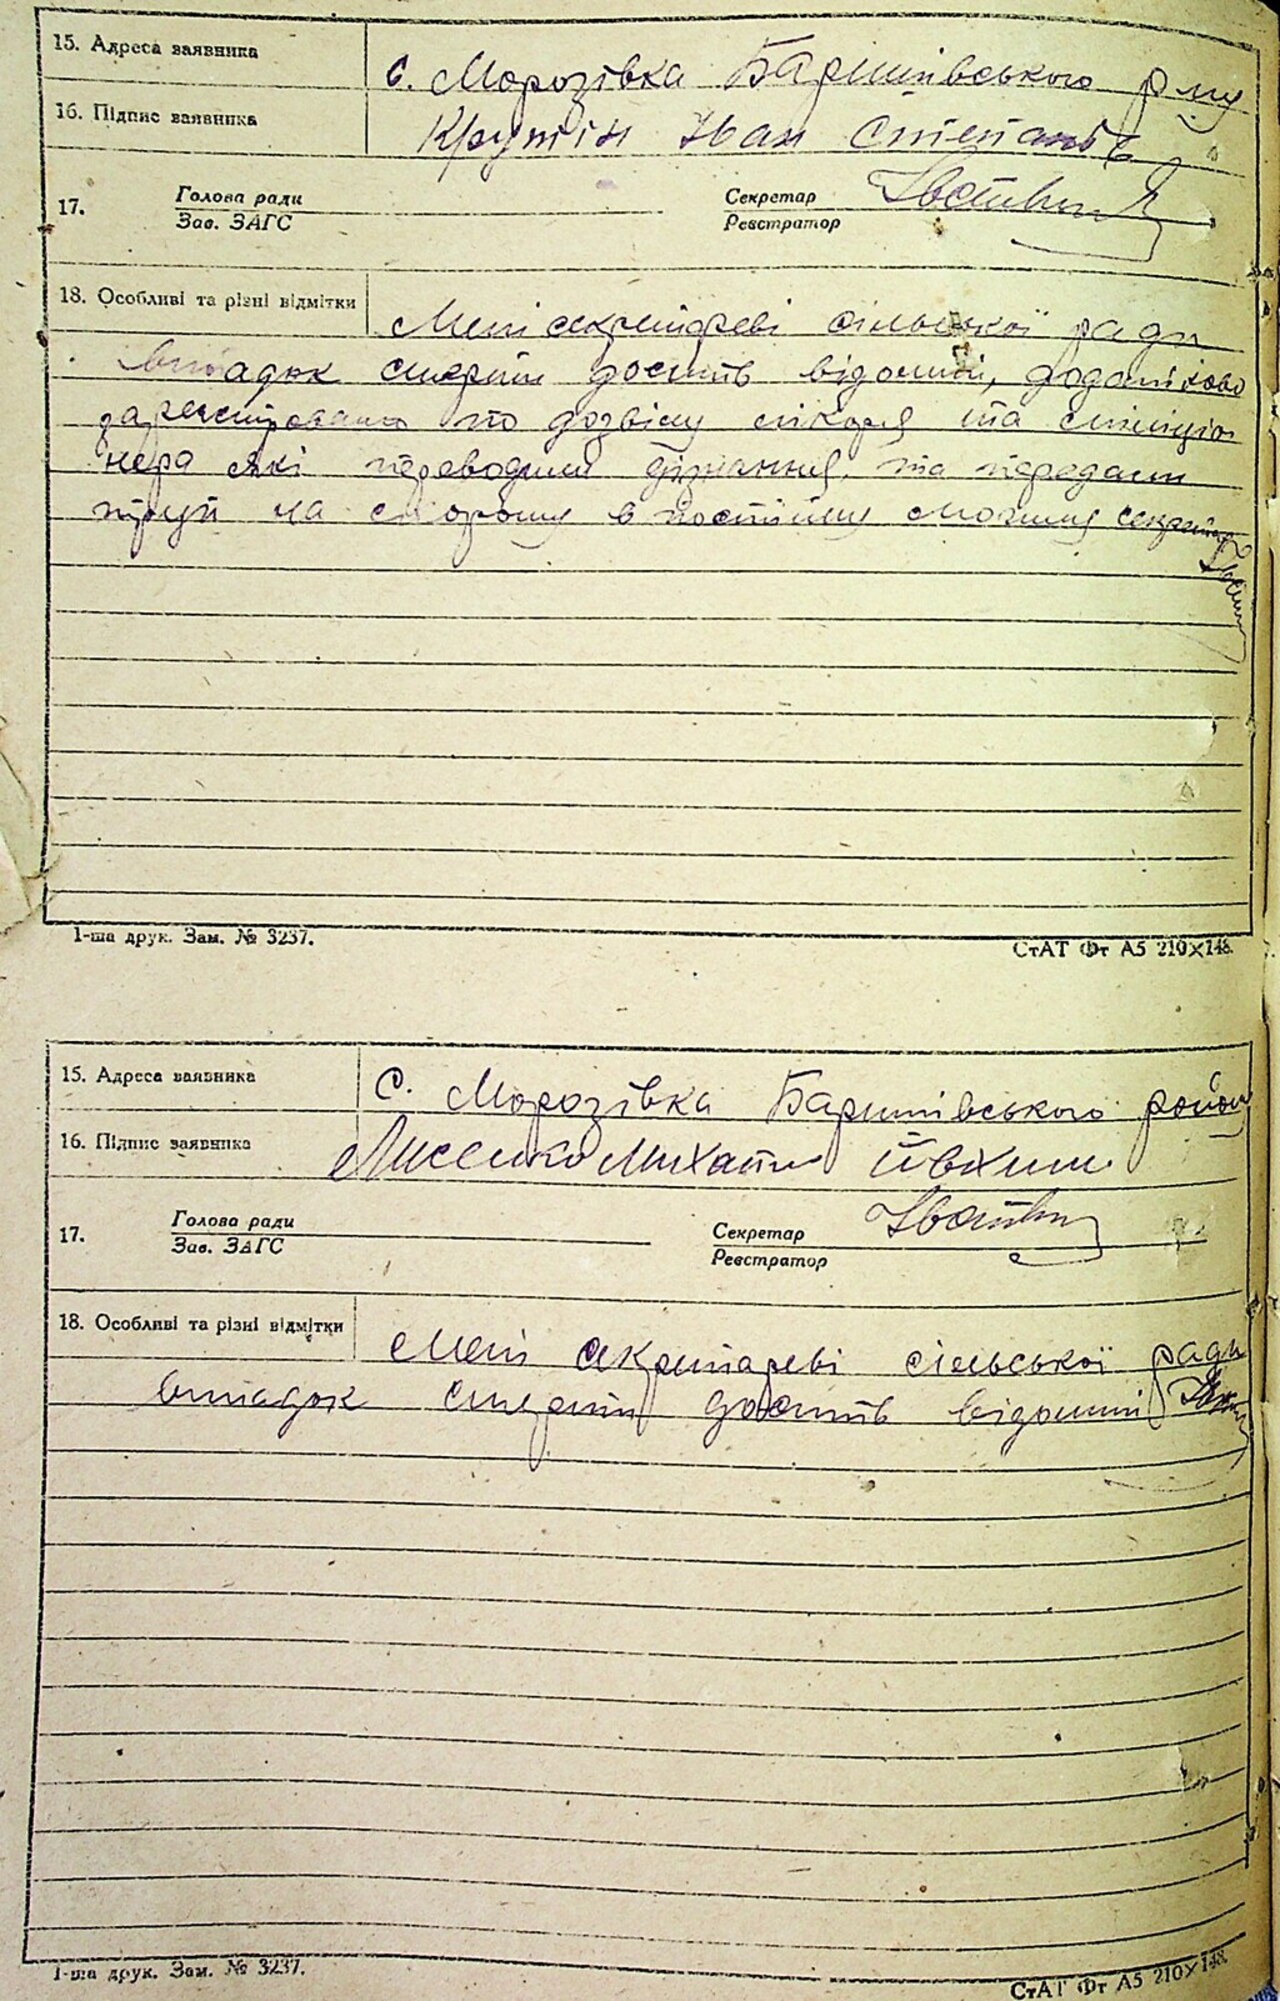 15. Адреса заявника с. Морозівка Баришівського р-ну
16. Підпис заявника Крутін Іван Степанов
17. Голова ради Секретар
Зав. ЗАГС Реєстратор
18. Особливі та різні відмітки Мені секретареві сільської ради
випадок смерти достть відомий, додатково
зареєстровано по дозвілу лікаря та міліціо
нера які переводили дізнання, та передали
труп на схорону в постійну могилу секретар
1-ша друк. Зам. № 3237. СтАТ Фт А5 210×148.
15. Адреса заявника С. Морозівка Баришівського район
16. Підпис заявника Лисенко Михайло
17. Голова ради Секретар
Зав. ЗАГС Реєстратор
18. Особливі та різні відмітки Мені секретареві сільської ради
випадок смерти достть відомий
1-ша друк. Зам. № 3237. СтАТ Фт А5 210×148.